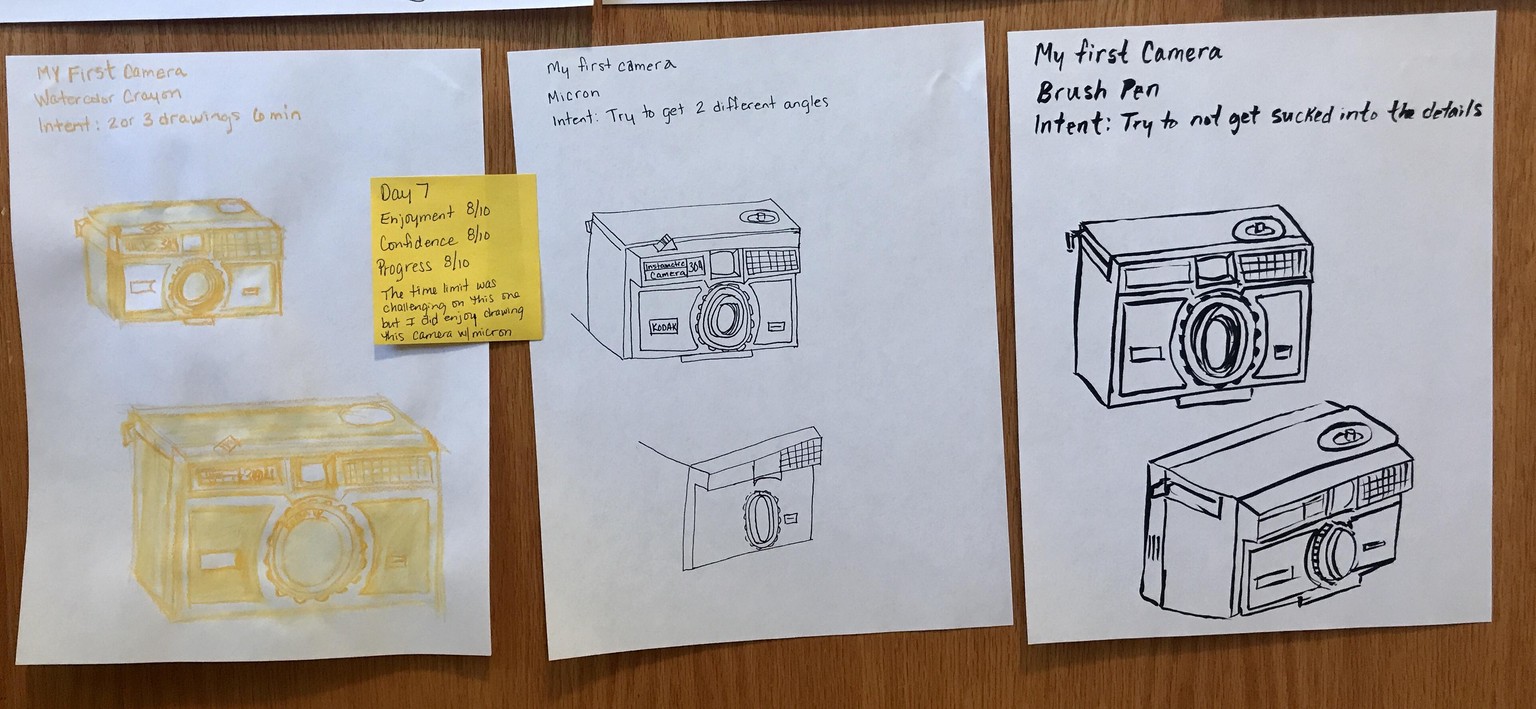 My First Camera
Watercolor Crayon
Intent: 2 or 3 drawings 6 min
Day 7
Enjoyment 8/10
Confidence 8/10
Progress 8/10
The time limit was
challenging on this one
but I did enjoy drawing
this camera w/micron
My first camera
Micron
Intent: Try to get 2 different angles
Instamatic
Camera
304
KODAK
My first Camera
Brush Pen
Intent: Try to not get sucked into the details